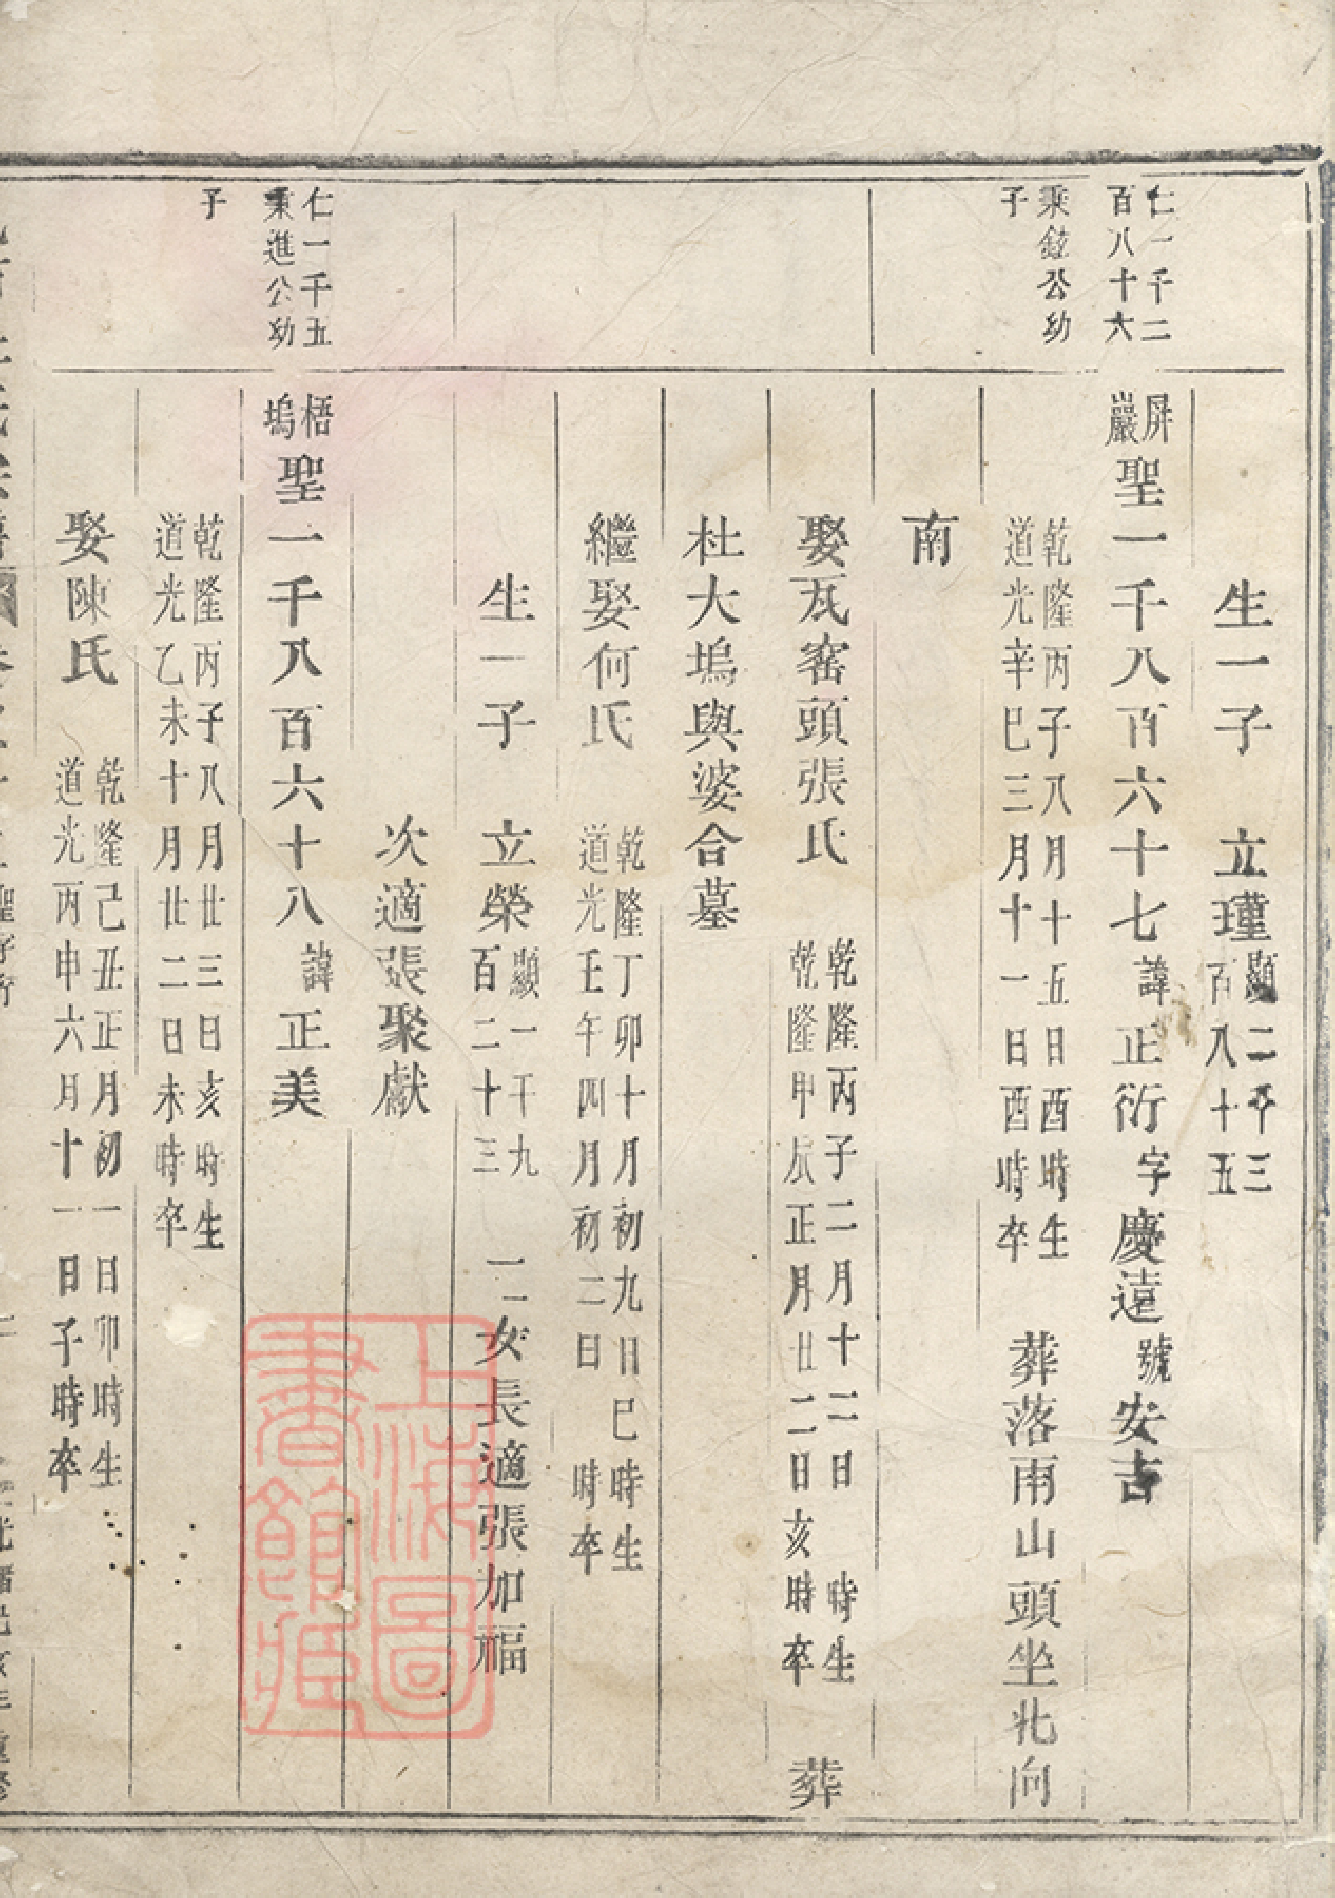 生一子 立瑾 顯二千三
百八十五
仁一千二
百八十六
秉鋐公幼
子
屏
巖 聖一千八百六十七 諱正衍 字慶遠 號安吉
乾隆丙子八月十五日酉時生
道光辛巳三月十一日酉時卒 葬落南山頭坐北向
南
娶瓦窰頭張氏 乾隆丙子二月十二日 時生
乾隆甲辰正月廿二日亥時卒 葬
杜大塢與婆合墓
繼娶何氏 乾隆丁卯十月初九日巳時生
道光壬午四月初二日 時卒
生一子 立榮 顯一千九
百二十三 二女長適張加福
次適張聚獻
仁一千五
秉進公幼
子
梧
塢 聖一千八百六十八 諱正美
乾隆丙子八月廿三日亥時生
道光乙未十月廿二日未時卒
娶陳氏 乾隆己丑正月初一日卯時生
道光丙申六月十一日子時卒
上海圖
書館藏